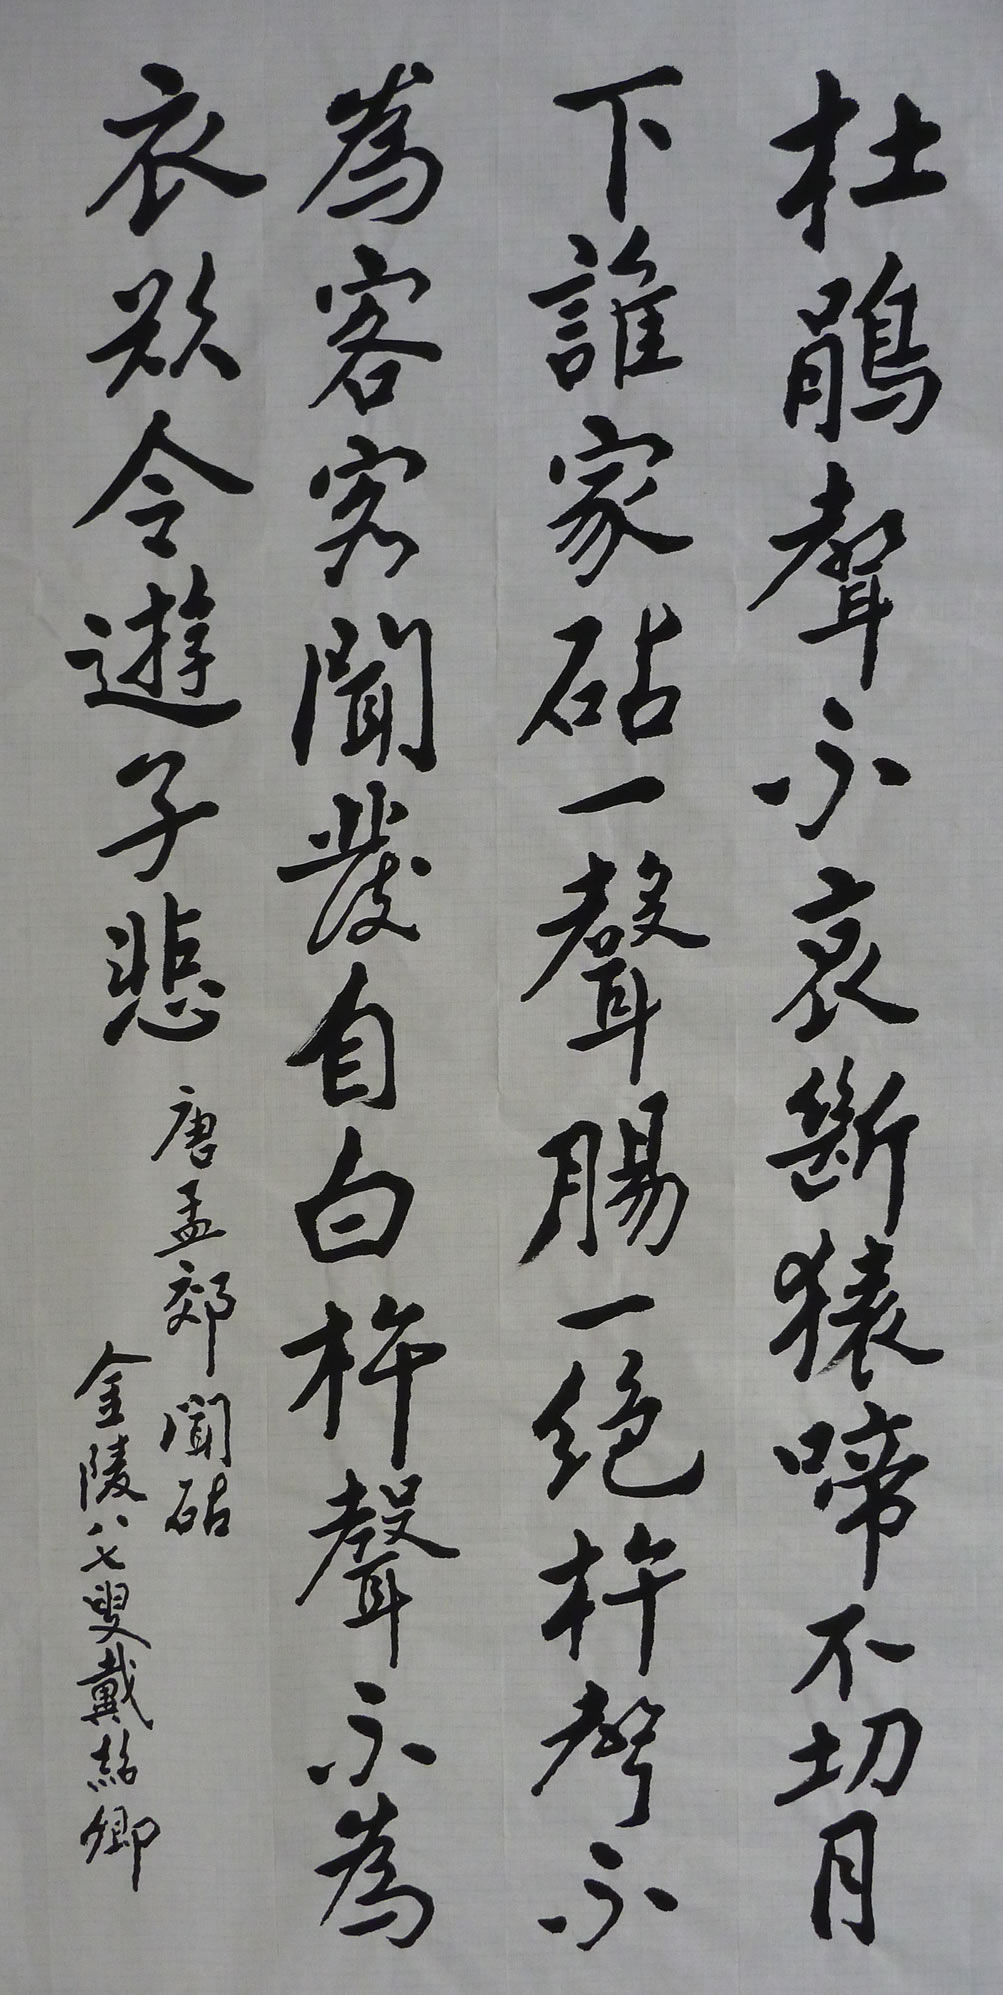 杜鵑聲不哀斷猿啼不切月
下誰家砧一聲腸一絕杵聲不
為客客聞髮自白杵聲不為
衣欲令遊子悲
唐孟郊聞砧
金陵八七叟戴紹卿